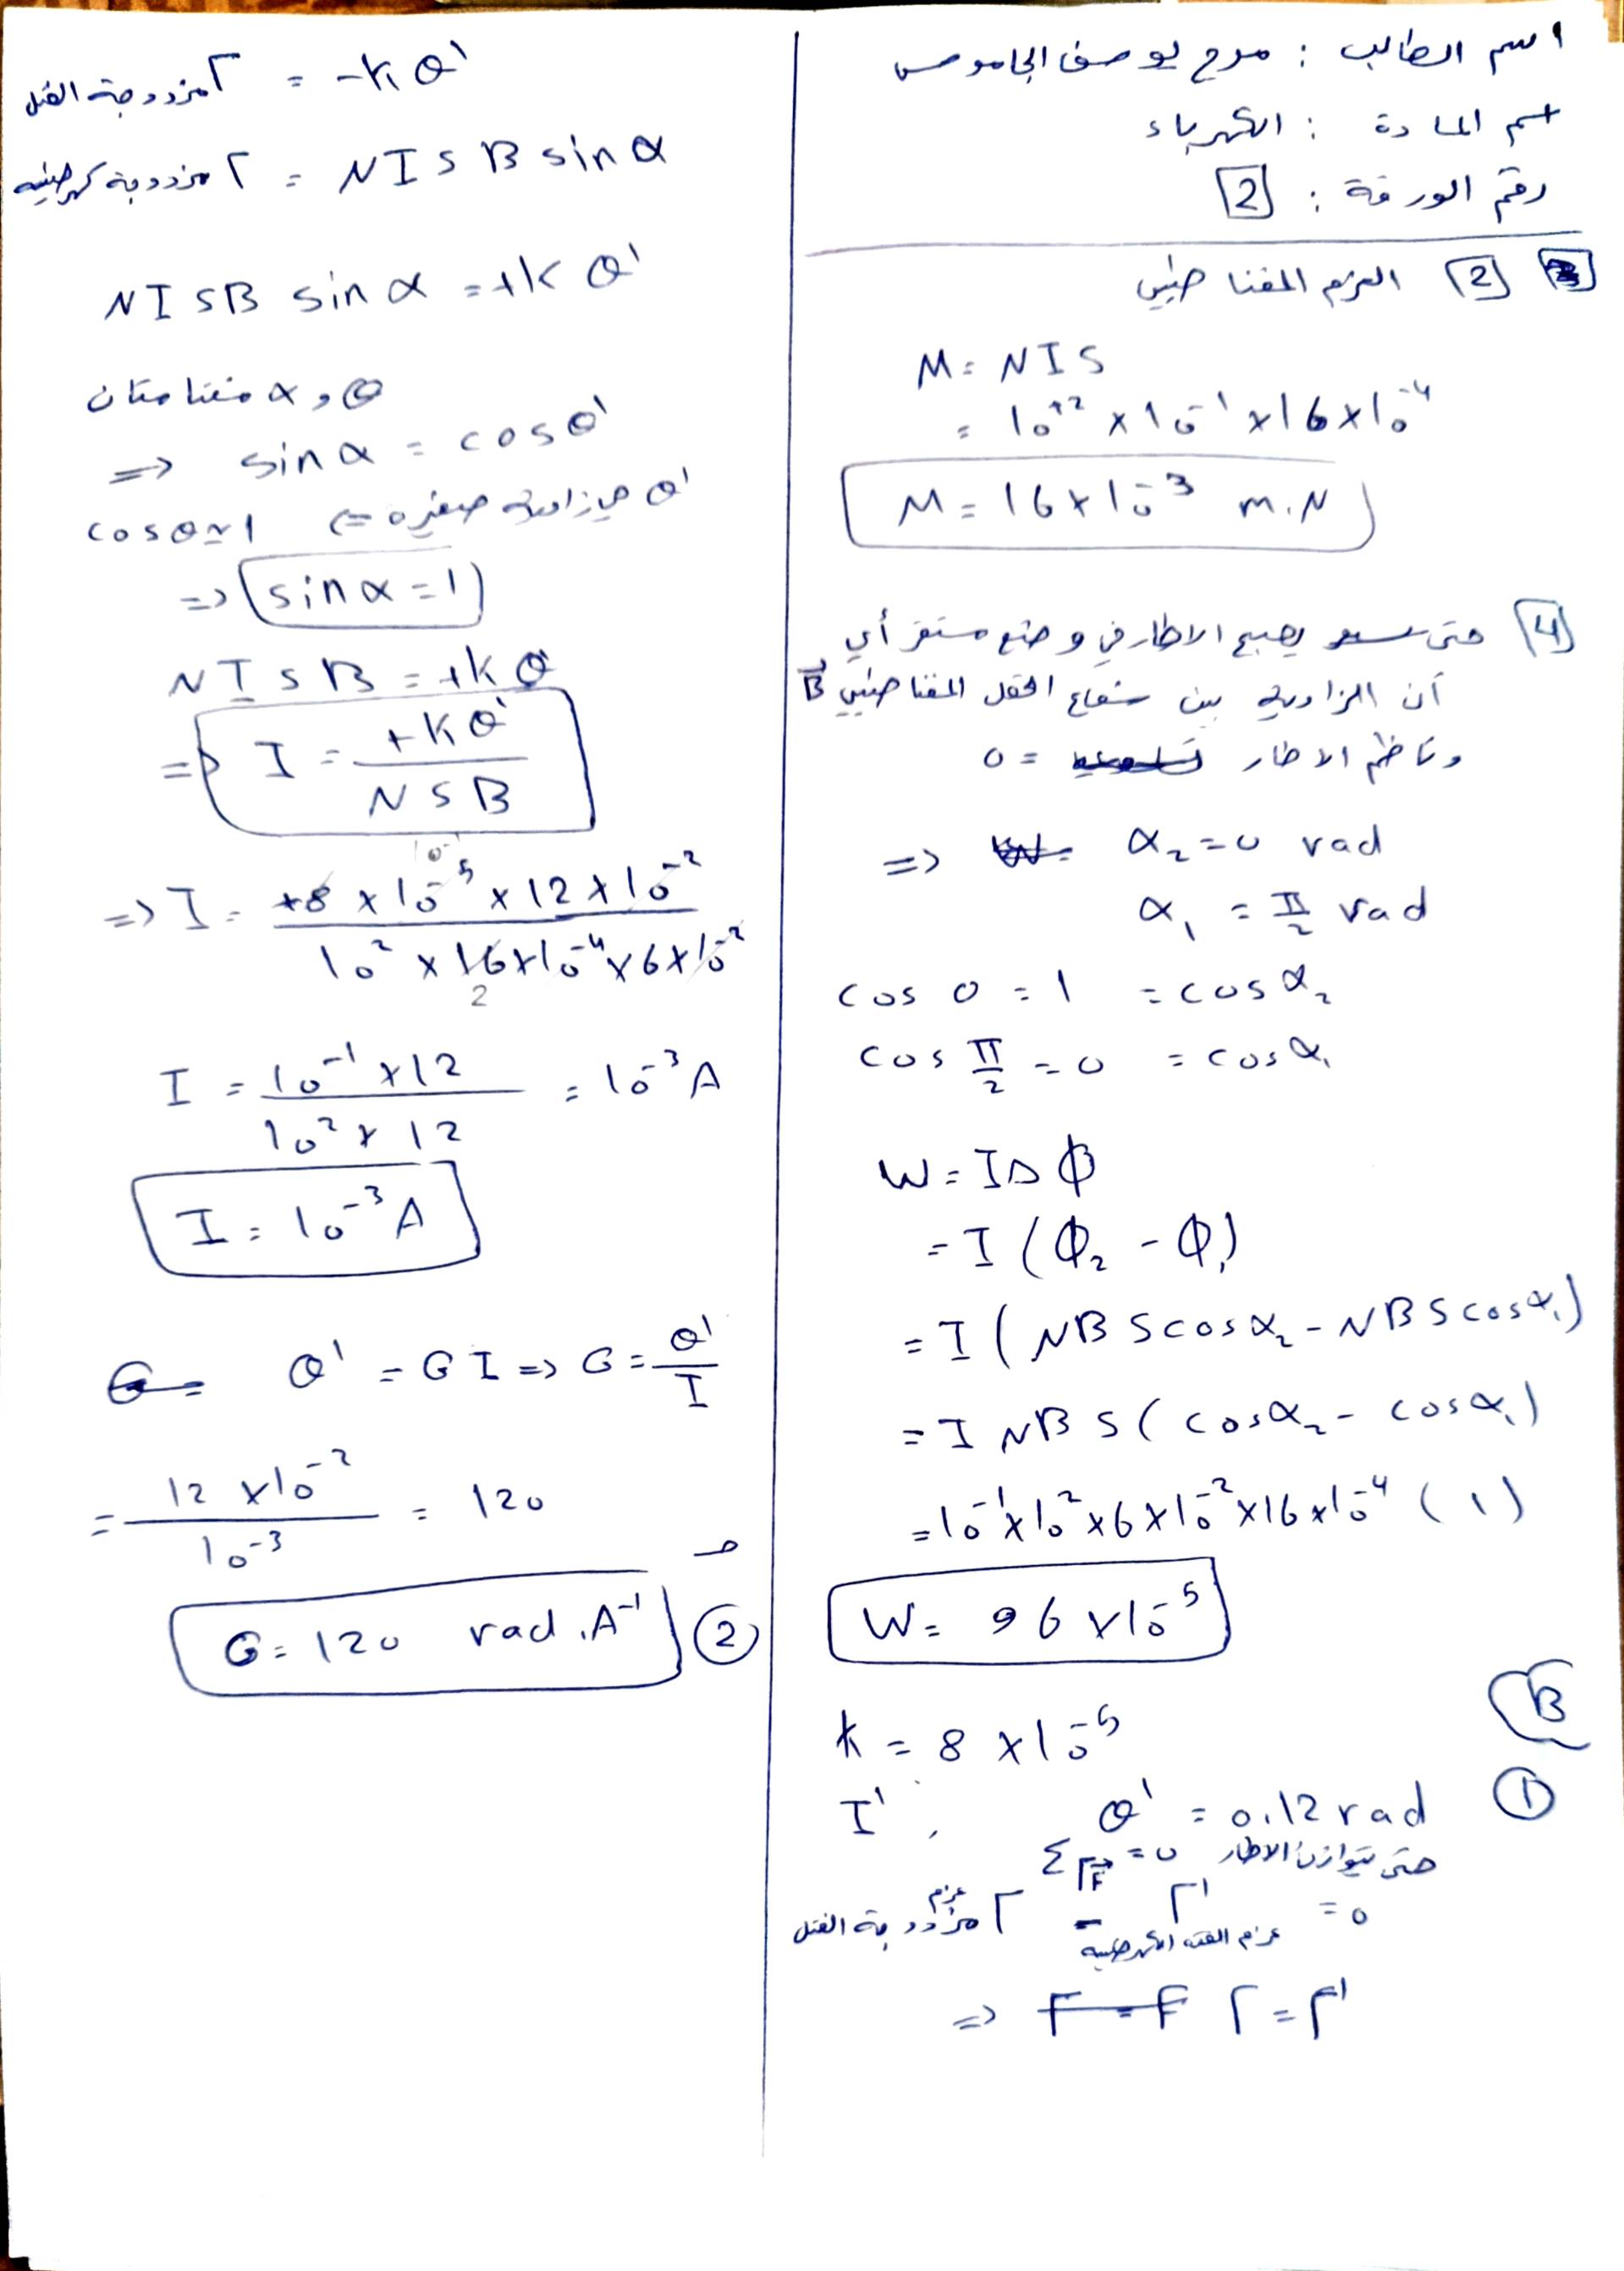 اسم الطالب : مرح يوصف الجاموس
اسم المادة : الكهرباء
رقم الورقة : 2
2 العزم المغناطيسي
M = NIS
= 10^+2 × 10^-1 × 16 × 10^-4
M = 16 × 10^-3 m.N
4 حتى يصبح الاطار في وضع مستقر أي
أن الزاوية بين شعاع الحقل المغناطيسي B
وناظم الاطار = 0
=> α₂ = 0 rad
α₁ = π/2 rad
cos 0 = 1 = cos α₂
cos π/2 = 0 = cos α₁
W = I Δ Φ
= I (Φ₂ - Φ₁)
= I (NBS cos α₂ - NBS cos α₁)
= I NBS (cos α₂ - cos α₁)
= 10^-1 × 10^2 × 6 × 10^-2 × 16 × 10^-4 (1)
W = 96 × 10^-5
B
k = 8 × 10^-5
1 I' , θ' = 0.12 rad
حتى يتوازن الاطار Σ Γ_F = 0
Γ عزم مزدوجة الفتل - Γ' عزم الكهرطيسية = 0
=> Γ = Γ'
Γ مزدوجة الفتل = -kθ'
Γ مزدوجة كهرطيسية = NISB sin α
NISB sin α = +kθ'
θ و α متتامتان
=> sin α = cos θ'
θ' هي زاوية صغيرة => cos θ ≈ 1
=> sin α = 1
NISB = +kθ'
=> I = +kθ' / NSB
=> I = +8 × 10^-5 × 12 × 10^-2 / 10^2 × 16 × 10^-4 × 6 × 10^-2
I = 10^-1 × 12 / 10^2 × 12 = 10^-3 A
I = 10^-3 A
θ' = GI => G = θ' / I
= 12 × 10^-2 / 10^-3 = 120
G = 120 rad.A^-1 2